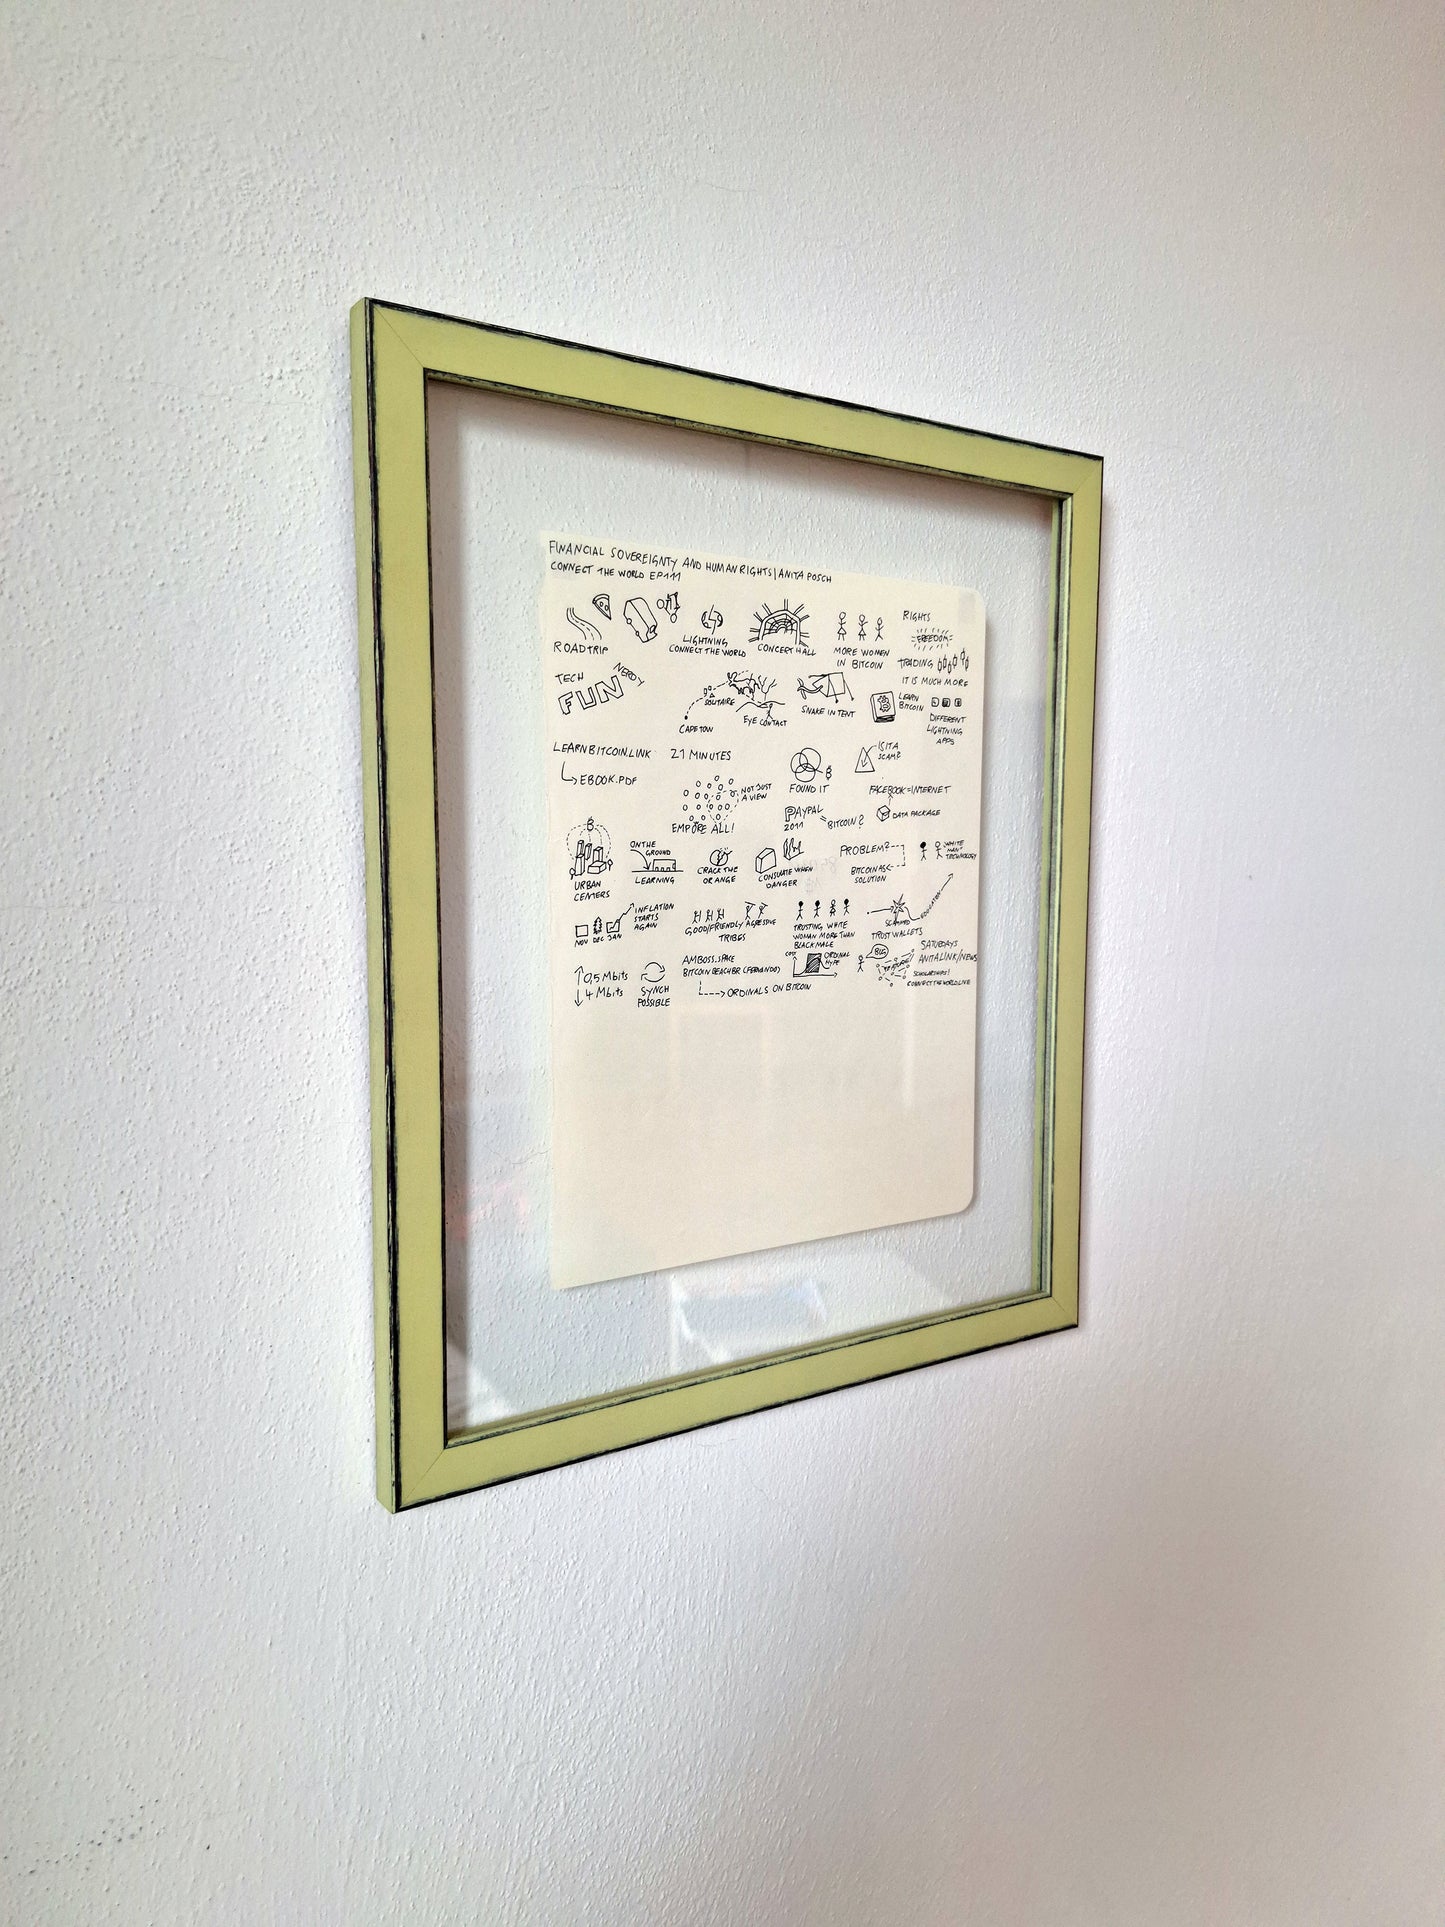 FINANCIAL SOVEREIGNTY AND HUMAN RIGHTS | ANITA POSCH
CONNECT THE WORLD EP111
ROADTRIP
LIGHTNING
CONNECT THE WORLD
CONCERT HALL
MORE WOMEN
IN BITCOIN
RIGHTS
FREEDOM
TRADING
IT IS MUCH MORE
TECH
FUN
NERDY
CAPETOWN
SOLITAIRE
EYE CONTACT
SNAKE IN TENT
LEARN
BITCOIN
DIFFERENT
LIGHTNING
APPS
LEARNBITCOIN.LINK
EBOOK.PDF
21 MINUTES
NOT JUST
A VIEW
EMPORE ALL!
FOUND IT
IS IT A
SCAM?
PAYPAL
2011
BITCOIN?
FACEBOOK=INTERNET
DATA PACKAGE
URBAN
CENTERS
ON THE
GROUND
LEARNING
CRACK THE
ORANGE
CONSULATE WHEN
DANGER
PROBLEM?
BITCOIN AS
SOLUTION
WHITE
MAN
TECHNOLOGY
NOV DEC JAN
INFLATION
STARTS
AGAIN
GOOD/FRIENDLY AGRESSIVE
TRIBES
TRUSTING WHITE
WOMAN MORE THAN
BLACK MALE
SCAMMED
EDUCATION
TRUST WALLETS
0,5 Mbits
4 Mbits
SYNCH
POSSIBLE
AMBOSS.SPACE
BITCOIN BEACH BR (FERNANDO)
ORDINALS ON BITCOIN
COST
ORDINAL
HYPE
BIG
SATURDAYS
ANITA.LINK/NEWS
SCHOLARSHIPS!
CONNECTTHEWORLD.LIVE